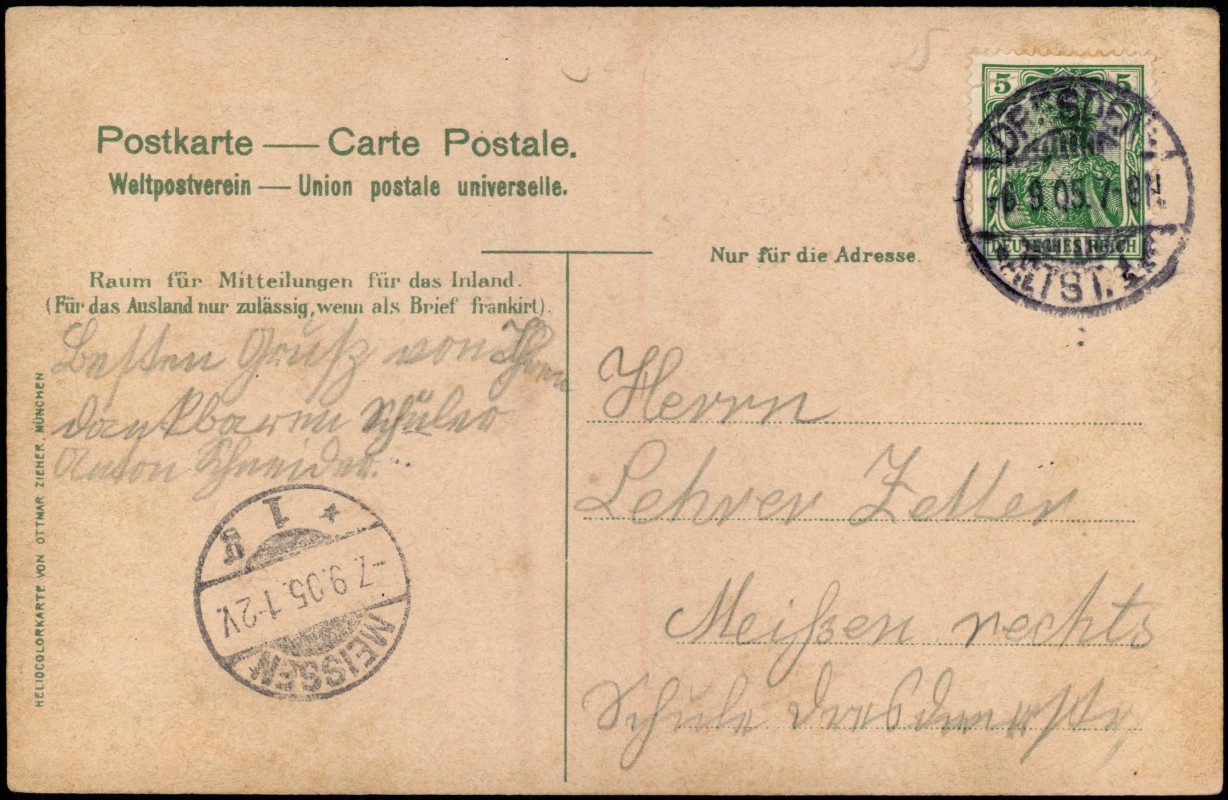 Postkarte — Carte Postale.
Weltpostverein — Union postale universelle.
5 5
DEUTSCHES REICH
DRESDEN
-6.9.05.7-8N.
ALTST.
Nur für die Adresse.
Raum für Mitteilungen für das Inland.
(Für das Ausland nur zulässig, wenn als Brief frankirt).
Besten Gruß von Ihren
dankbaren Schüler
Anton Schneider.
Herrn
Lehrer Zeller
Meißen rechts
Schule Dresdnerstr,
MEISSEN
-7.9.05.1-2V.
* 1
HELIOCOLORKARTE VON OTTMAR ZIEHER, MÜNCHEN